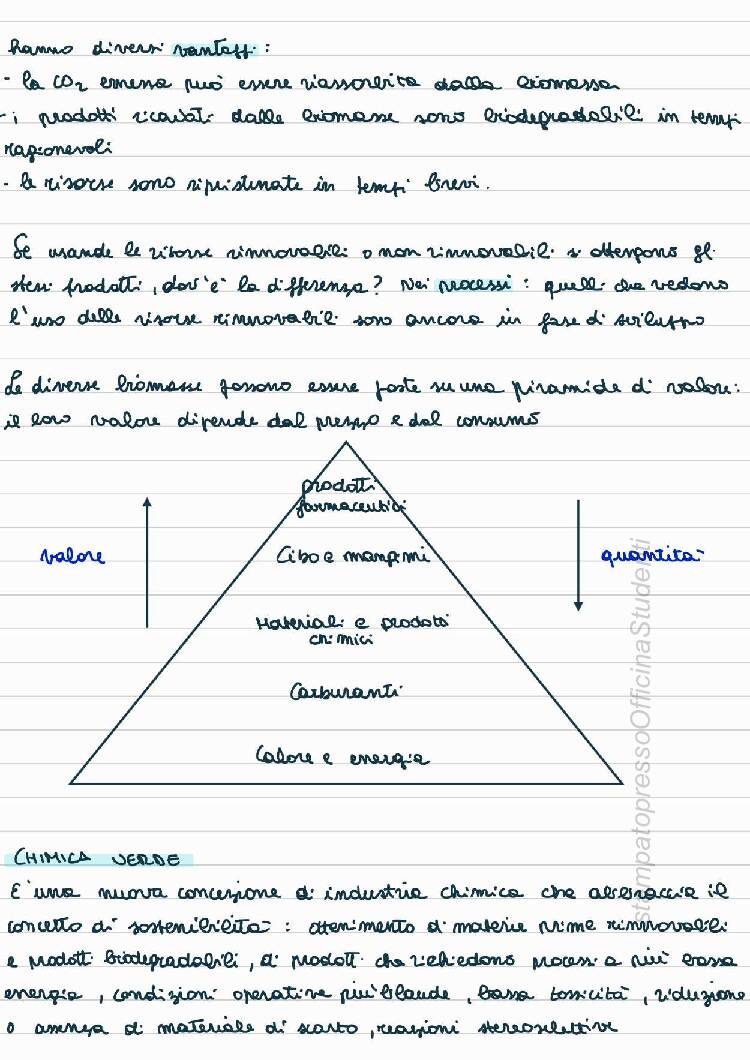 hanno diversi vantaggi:
- la CO2 emessa può essere riassorbita dalla biomassa
- i prodotti ricavati dalle biomasse sono biodegradabili in tempi
ragionevoli
- le risorse sono ripristinate in tempi brevi.
Se usando le risorse rinnovabili o non rinnovabili si ottengono gli
stessi prodotti, dov'è la differenza? Nei processi: quelli che vedono
l'uso delle risorse rinnovabili sono ancora in fase di sviluppo
Le diverse biomasse possono essere poste su una piramide di valore:
il loro valore dipende dal prezzo e dal consumo
prodotti
farmaceutici
valore
Cibo e mangimi
quantità
Materiali e prodotti
chimici
Carburanti
Calore e energia
stampatopressoOfficinaStudenti
CHIMICA VERDE
E' una nuova concezione di industria chimica che abbraccia il
concetto di sostenibilità: ottenimento di materie prime rinnovabili
e prodotti biodegradabili, di prodotti che richiedono processi a più bassa
energia, condizioni operative più blande, bassa tossicità, riduzione
o assenza di materiale di scarto, reazioni stereoselettive